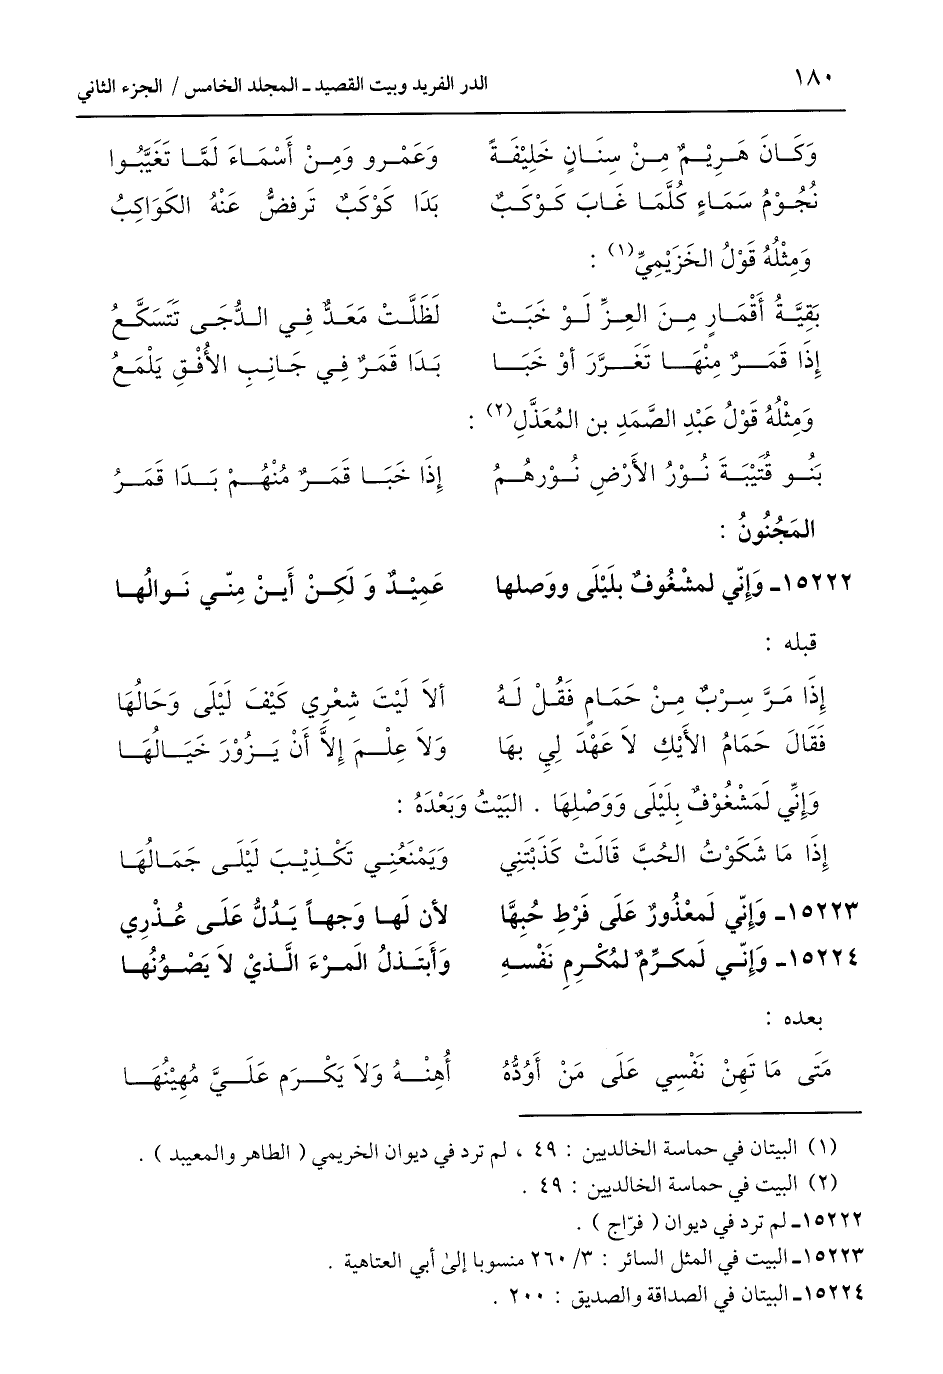 ١٨٠ الدر الفريد وبيت القصيد ـ المجلد الخامس / الجزء الثاني
وَكَانَ هَرِيْمٌ مِنْ سِنَانٍ خَلِيْفَةً وَعَمْرو وَمِنْ أَسْمَاءَ لَمَّا تَغَيَّبُوا
نُجُوْمُ سَمَاءٍ كُلَّمَا غَابَ كَوْكَبٌ بَدَا كَوْكَبٌ تَرفضُّ عَنْهُ الكَوَاكِبُ
وَمِثْلُهُ قَوْلُ الخَزَيْمِيِّ(١) :
بَقِيَّةُ أَقْمَارٍ مِنَ العِزِّ لَوْ خَبَتْ لَظَلَّتْ مَعَدٌّ فِي الدُّجَى تَتَسَكَّعُ
إِذَا قَمَرٌ مِنْهَا تَغَرَّرَ أوْ خَبَا بَدَا قَمَرٌ فِي جَانِبِ الأُفْقِ يَلْمَعُ
وَمِثْلُهُ قَوْلُ عَبْدِ الصَّمَدِ بن المُعَذَّلِ(٢) :
بَنُو قُتَيْبَةَ نُوْرُ الأَرْضِ نُوْرهُمُ إِذَا خَبَا قَمَرٌ مُنْهُمْ بَدَا قَمَرُ
المَجْنُونُ :
١٥٢٢٢ـ وَإِنّي لمشْغُوفٌ بلَيْلَى ووَصلها عَمِيْدٌ وَ لَكِنْ أَينْ مِنّي نَوالُها
قبله :
إِذَا مَرَّ سِرْبٌ مِنْ حَمَامٍ فَقُلْ لَهُ ألاَ لَيْتَ شِعْرِي كَيْفَ لَيْلَى وَحَالُهَا
فَقَالَ حَمَامُ الأَيْكِ لاَ عَهْدَ لِي بهَا وَلاَ عِلْمَ إِلاَّ أَنْ يَزُوْرَ خَيَالُهَا
وَإِنِّي لَمَشْغُوْفٌ بِلَيْلَى وَوَصْلِهَا . البَيْتُ وَبَعْدَهُ :
إِذَا مَا شَكَوْتُ الحُبَّ قَالَتْ كَذَبْتَنِي وَيَمْنَعُنِي تَكْذِيْبَ لَيْلَى جَمَالُهَا
١٥٢٢٣ـ وَإِنّي لَمعْذُورٌ عَلَى فَرْطِ حُبِهَّا لأن لَها وَجهاً يَدُلُّ عَلَى عُذْرِي
١٥٢٢٤ـ وَإِنّي لَمكرِّمٌ لمُكْرِمِ نَفْسهِ وَأَبتَذلُ المَرْءَ الَّذيْ لاَ يَصْوُنُها
بعده :
مَتَى مَا تَهِنْ نَفْسِي عَلَى مَنْ أَوُدُّهُ أُهِنْهُ وَلاَ يَكْرَم عَلَيَّ مُهِيْنُهَا
(١) البيتان في حماسة الخالديين : ٤٩ ، لم ترد في ديوان الخريمي ( الطاهر والمعيبد ) .
(٢) البيت في حماسة الخالديين : ٤٩ .
١٥٢٢٢ـ لم ترد في ديوان ( فرّاج ) .
١٥٢٢٣ـ البيت في المثل السائر : ٣/ ٢٦٠ منسوبا إلى أبي العتاهية .
١٥٢٢٤ـ البيتان في الصداقة والصديق : ٢٠٠ .